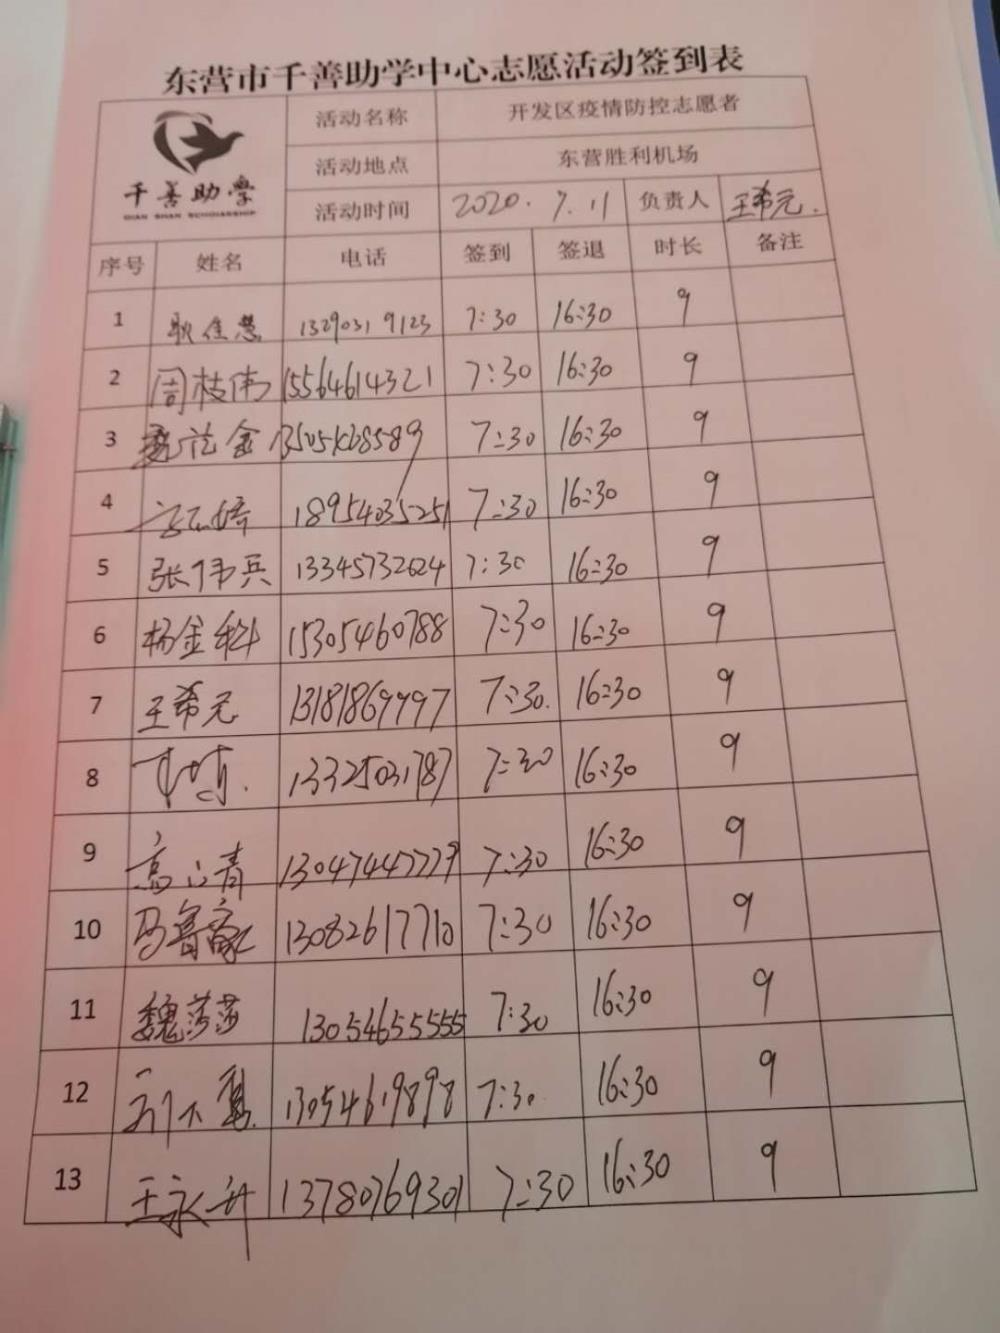 东营市千善助学中心志愿活动签到表
千善助学
QIAN SHAN SCHOLARSHIP
活动名称 开发区疫情防控志愿者
活动地点 东营胜利机场
活动时间 2020.7.11 负责人 王希元.
序号 姓名 电话 签到 签退 时长 备注
1 耿佳慧 13290319123 7:30 16:30 9
2 周枝伟 15564614321 7:30 16:30 9
3 金 7:30 16:30 9
4 18954035251 7:30 16:30 9
5 张伟兵 13345732624 7:30 16:30 9
6 杨金科 15305460788 7:30 16:30 9
7 王希元 13181869997 7:30. 16:30 9
8 13325031787 7:30 16:30 9
9 高 青 13047447779 7:30 16:30 9
10 马鲁豪 13082617710 7:30 16:30 9
11 魏莎莎 13054655555 7:30 16:30 9
12 13054619898 7:30. 16:30 9
13 王永升 13780769301 7:30 16:30 9